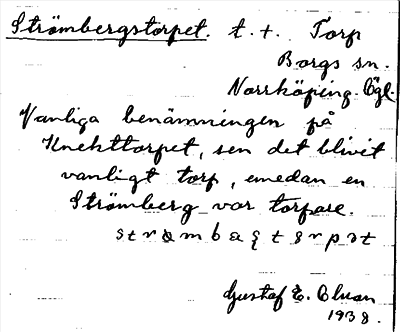 Strömbergstorpet. t. +. Torp
Borgs sn.
Norrköping. Ögl.
Vanliga benämningen på
Knekttorpet, sen det blivit
vanligt torp, emedan en
Strömberg var torpare.
Gustaf E.
1938.